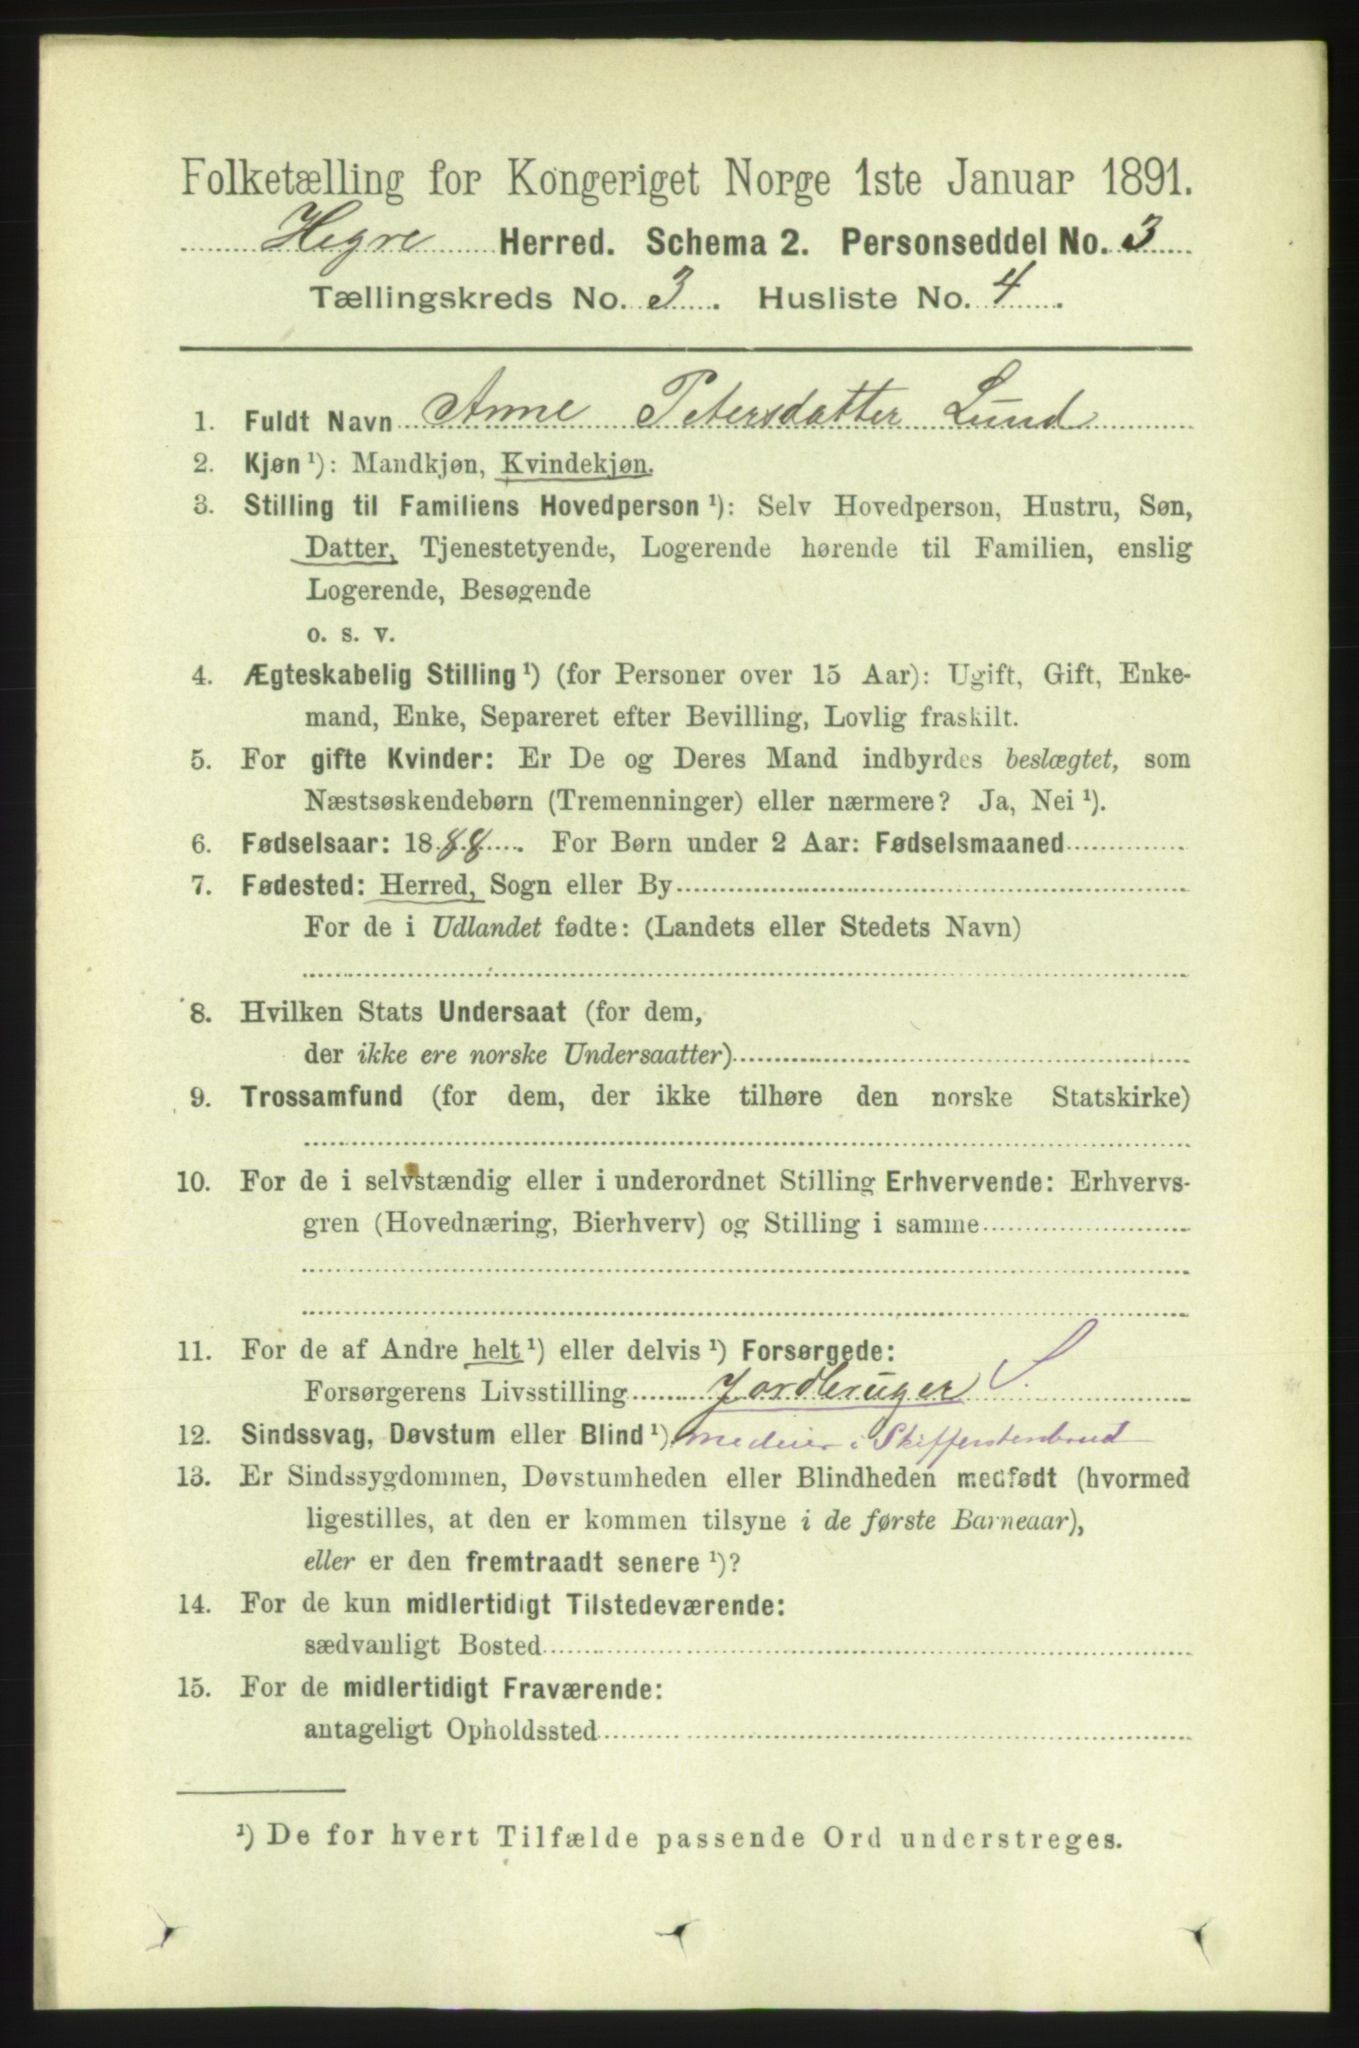 Folketælling for Kongeriget Norge 1ste Januar 1891.
Hegre Herred. Schema 2. Personseddel No. 3
Tællingskreds No. 3. Husliste No. 4.
1. Fuldt Navn Anne Petersdatter Lund
2. Kjøn ¹): Mandkjøn, Kvindekjøn.
3. Stilling til Familiens Hovedperson ¹): Selv Hovedperson, Hustru, Søn,
Datter, Tjenestetyende, Logerende hørende til Familien, enslig
Logerende, Besøgende
o. s. v.
4. Ægteskabelig Stilling ¹) (for Personer over 15 Aar): Ugift, Gift, Enke-
mand, Enke, Separeret efter Bevilling, Lovlig fraskilt.
5. For gifte Kvinder: Er De og Deres Mand indbyrdes beslægtet, som
Næstsøskendebørn (Tremenninger) eller nærmere? Ja, Nei ¹).
6. Fødselsaar: 1888. For Børn under 2 Aar: Fødselsmaaned
7. Fødested: Herred, Sogn eller By
For de i Udlandet fødte: (Landets eller Stedets Navn)
8. Hvilken Stats Undersaat (for dem,
der ikke ere norske Undersaatter)
9. Trossamfund (for dem, der ikke tilhøre den norske Statskirke)
10. For de i selvstændig eller i underordnet Stilling Erhvervende: Erhvervs-
gren (Hovednæring, Bierhverv) og Stilling i samme
11. For de af Andre helt ¹) eller delvis ¹) Forsørgede:
Forsørgerens Livsstilling Jordbruger S.
12. Sindssvag, Døvstum eller Blind ¹). medeier i Skifferstenbrud
13. Er Sindssygdommen, Døvstumheden eller Blindheden medfødt (hvormed
ligestilles, at den er kommen tilsyne i de første Barneaar),
eller er den fremtraadt senere ¹)?
14. For de kun midlertidigt Tilstedeværende:
sædvanligt Bosted
15. For de midlertidigt Fraværende:
antageligt Opholdssted
¹) De for hvert Tilfælde passende Ord understreges.